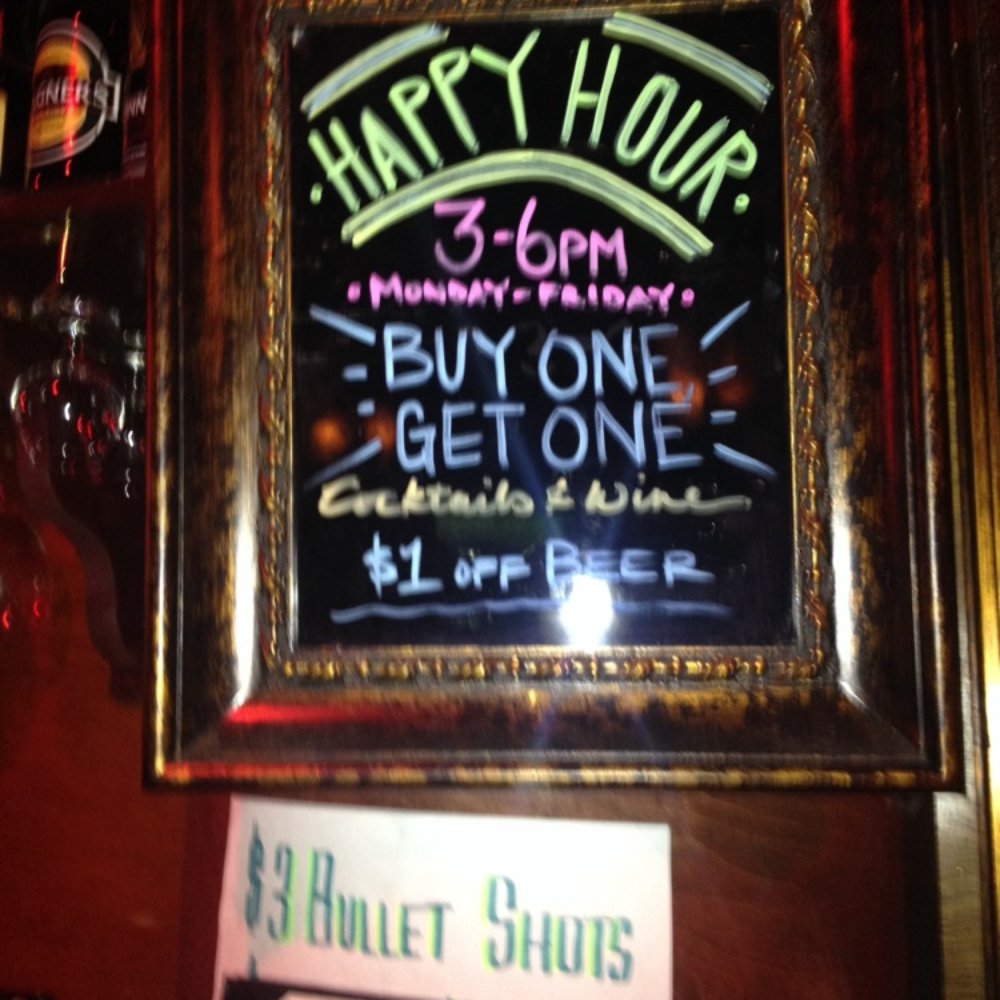 HAPPY HOUR
3-6PM
MONDAY-FRIDAY
BUY ONE,
GET ONE
Cocktails & Wine
$1 OFF BEER
$3 BULLET SHOTS